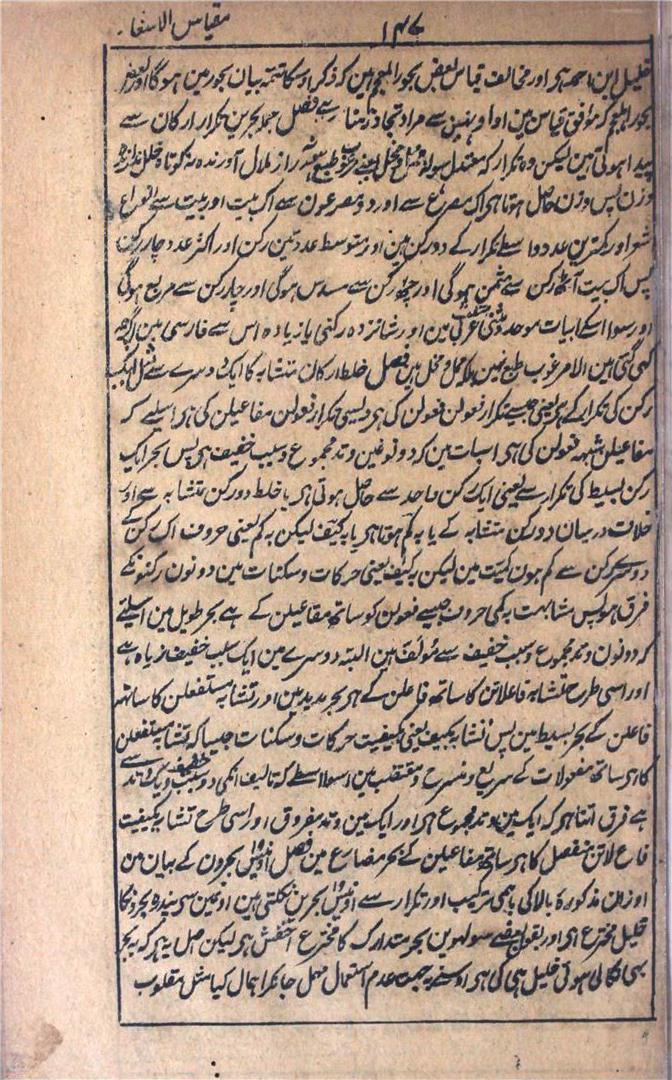 ۱۴۷ مقیاس الاشعار
خلیل ابن احمد ہی اور مخالف قیاس بعض بحور العجم ہین کہ ذکر اوسکا تتمہ بیان بحور مین ہوگا اور بعض
بحور العجم کہ موافق قیاس ہین اور اونہین سے مراد فصل جملہ بحرین تکرار ارکان سے
پیدا ہوتی ہین لیکن وہ تکرار کہ معتدل ہو نہ طبع سے از ملال آورندہ نہ کوتاہ و خلل اندازندہ
وزن پس وزن حاصل ہوتا ہی اک مصرع سے اور دو مصرعون سے اک بیت اور بیت سے انواع
شعر اور کمترین عدد واسطے تکرار کے دو رکن ہین اور متوسط عدد تین رکن اور اکثر عدد چار رکن
پس اک بیت آٹھ رکن سے مثمن ہوگی اور چھ رکن سے مسدس ہوگی اور چار رکن سے مربع ہوگی
اور سوا اسکے ابیات موحد و مثنی عربی مین اور شانزدہ رکنی یا زیادہ اس سے فارسی مین اگرچہ
کہی گئی ہین الا مرغوب طبع نہین بلکہ ممل و مخل ہین فصل خلط ارکان متشابہ کا ایک دوسرے سے مثل ایک
رکن کی تکرار کے ہی یعنی جیسے تکرار فعولن فعولن کی ہی ویسی تکرار فعولن مفاعیلن کی ہی اسلیے کہ
مفاعیلن شبیہ فعولن کی ہی اس بات مین کہ دونون مین وتد مجموع و سبب خفیف ہی پس بحر ایک
رکن بسیط کی تکرار سے یعنی ایک رکن واحد سے حاصل ہوتی ہی یا خلط دو رکن متشابہ سے اور
خلاف درمیان دو رکن متشابہ کے یا بہ کم ہوتا ہی یا بہ کیف لیکن بہ کم یعنی حروف اک رکن کے
دوسرے رکن سے کم ہون کمیت مین لیکن بہ کیف یعنی حرکات و سکنات مین دونون رکنونکے
فرق ہو پس مشابہت بہ کمی حروف جیسے فعولن کو ساتھ مفاعیلن کے ہے بحر طویل مین اسلیے
کہ دونون وتد مجموع و سبب خفیف سے مؤلف ہین البتہ دوسرے مین ایک سبب خفیف زیادہ ہے
اور اسی طرح تشابہ فاعلاتن کا ساتھ فاعلن کے ہی بحر مدید مین اور تشابہ مستفعلن کا ساتھ
فاعلن کے بحر بسیط مین پس تشابہ بکیف یعنی کیفیت حرکات و سکنات جیسا کہ تشابہ مستفعلن
کا ہی ساتھ مفعولات کے سریع و منسرح و مقتضب مین اسواسطے کہ تالیف انکی دو سبب خفیف و یک وتد سے
ہے فرق اتنا ہی کہ ایک مین وتد مجموع ہی اور ایک مین وتد مفروق اور اسی طرح تشابہ بکیفیت
فاع لاتن منفصل کا ہی ساتھ مفاعیلن کے بحر مضارع مین فصل اونیس بحرون کے بیان مین
اوزان مذکورہ بالا کی باہمی ترکیب اور تکرار سے اونیس بحرین نکلتی ہین اونمین سی پندرہ بحرونکا
خلیل مخترع ہی اور بقول بعضے سولہوین بحر متدارک کا مخترع اخفش ہی لیکن اصل یہ ہی کہ یہ بحر
بھی نکالی ہوئی خلیل ہی کی ہی اوسنے بہ جہت عدم استعمال مہمل جانکر اہمال کیا مثل مقلوب